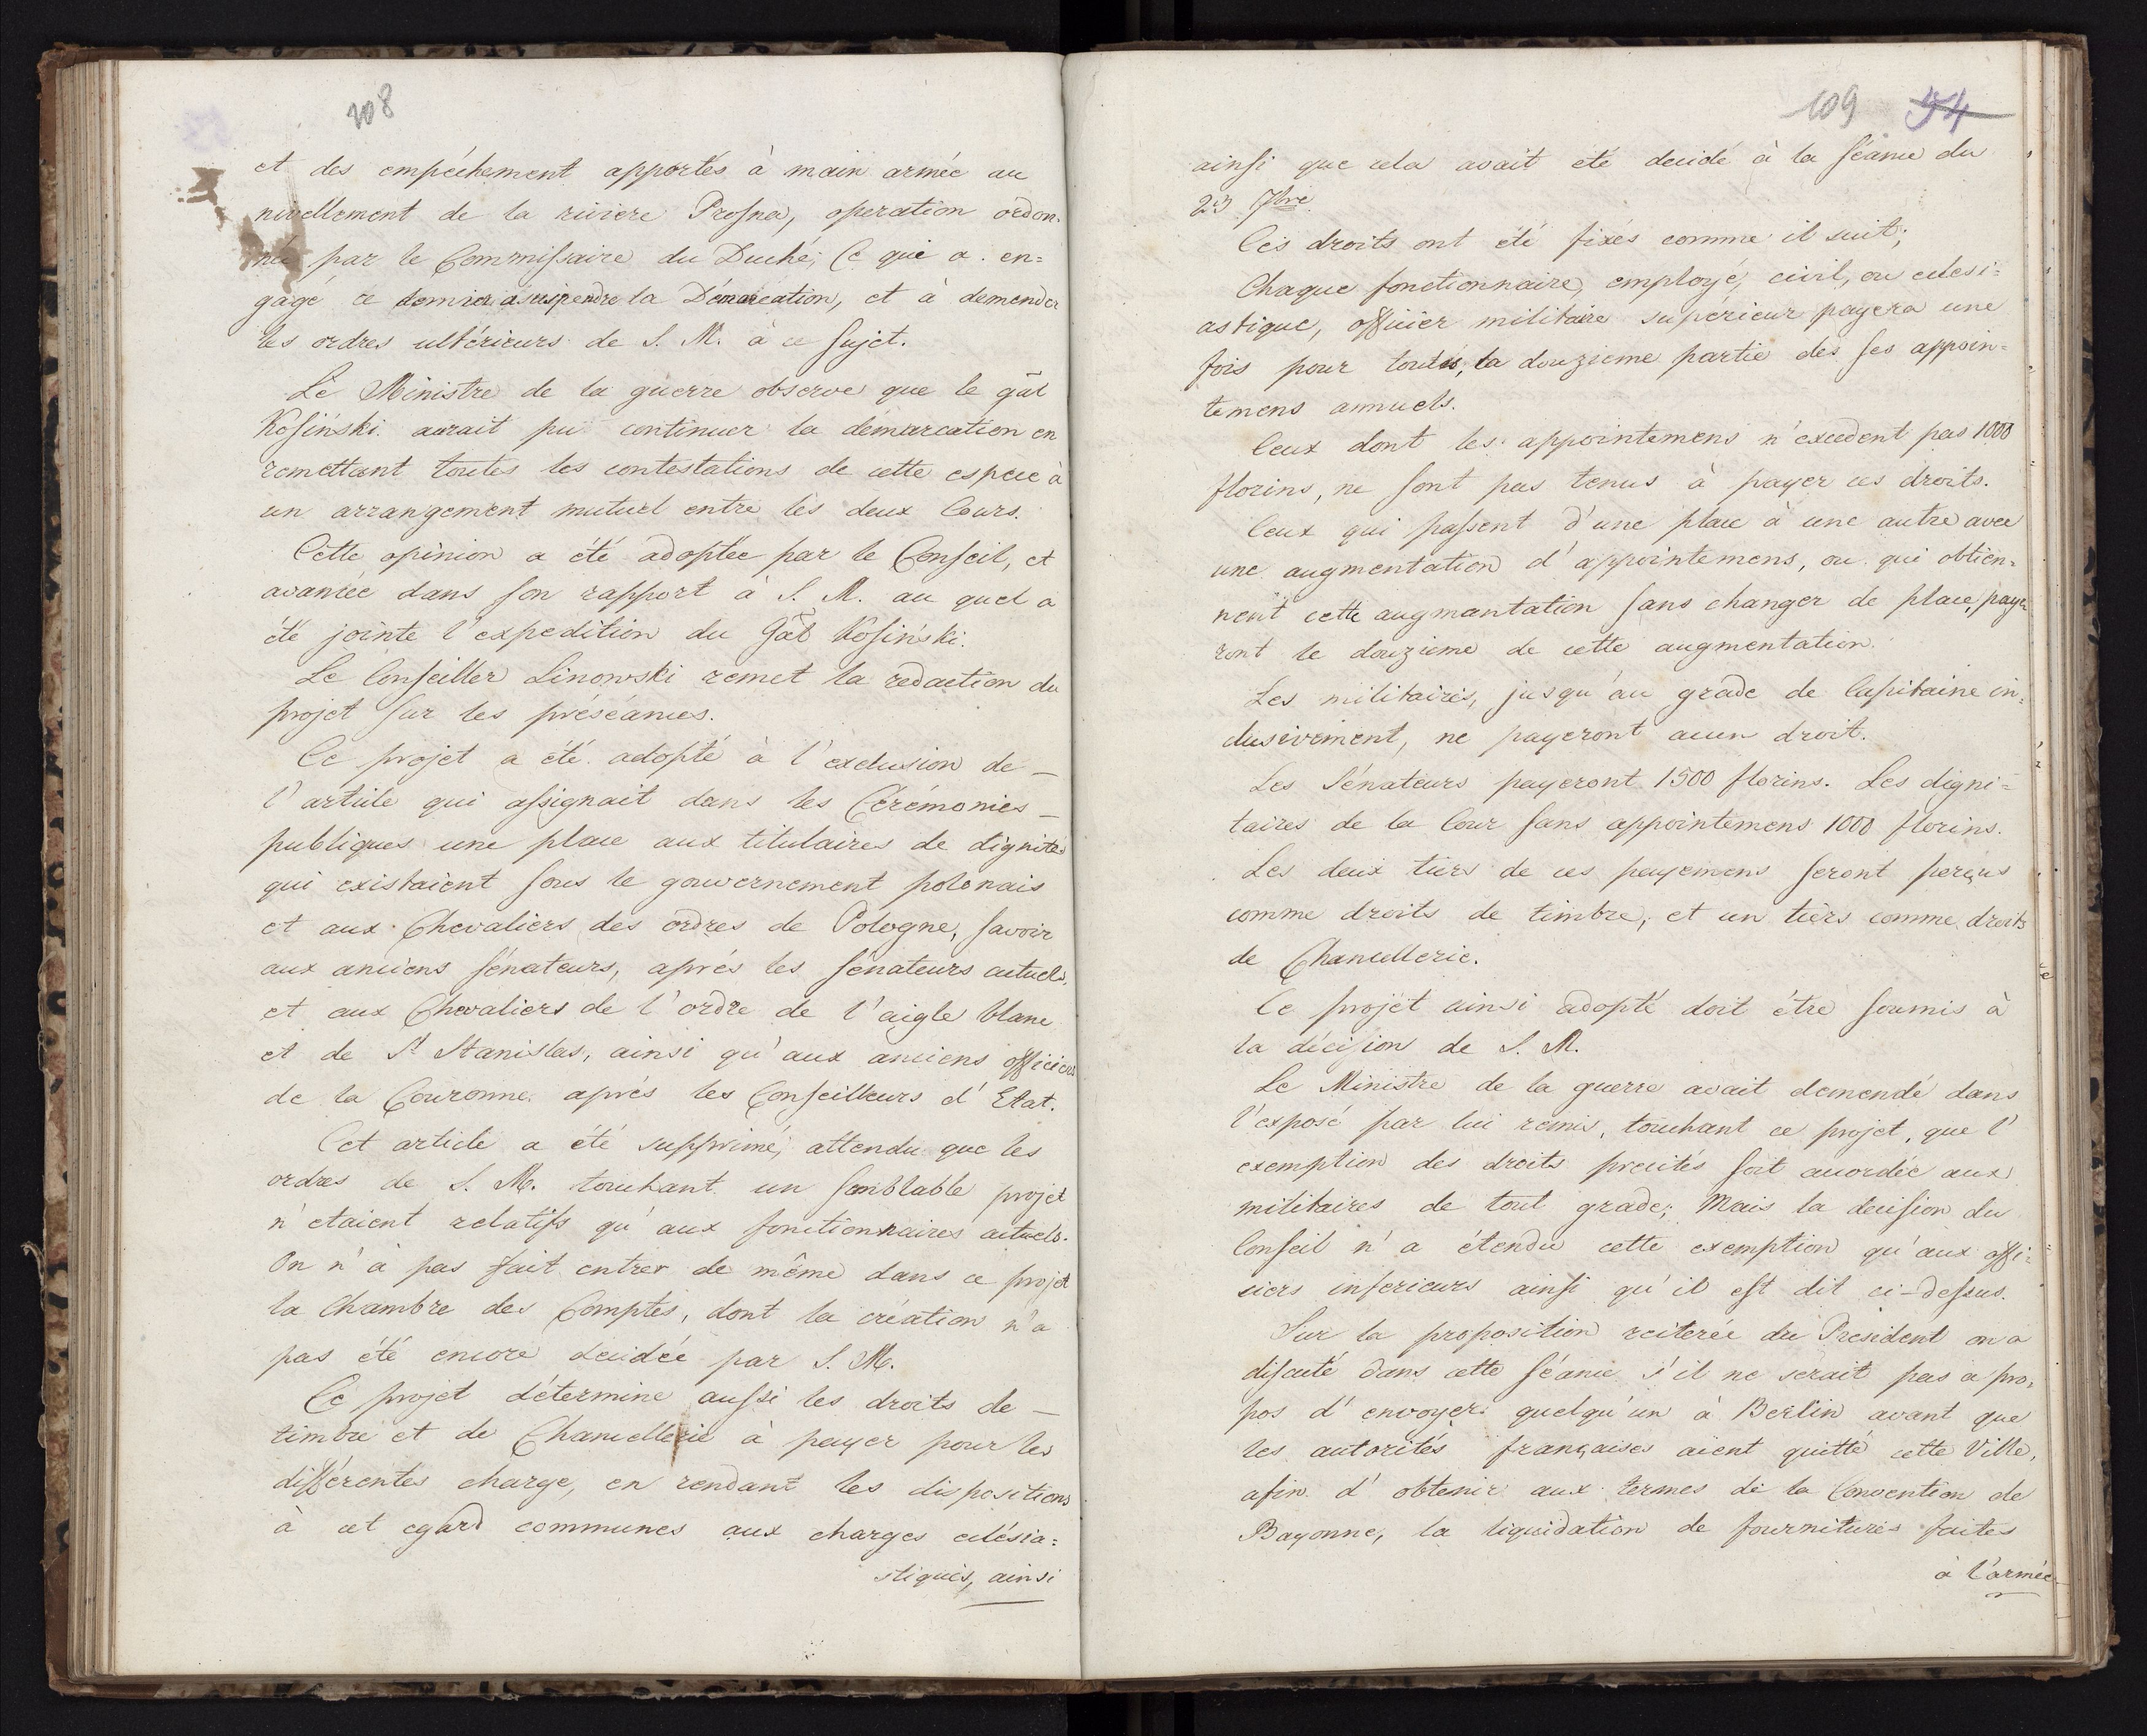 108
et des empéchement apportés à main armée au
nivellement de la riviere Prosna, operation ordon-
née par le Commissaire du Duché; Ce que a en=
gagé ce dernier à suspendre la Démarcation, et à demender
les ordres ultérieurs de S. M. à ce sujet.
Le Ministre de la guerre observe que le gãl
Kosiński aurait pu continuer la démarcation en
remettant toutes les contestations de cette espece à
un arrangement mutuel entre les deux Cours.
Cette opinion a été adoptée par le Conseil, et
avancée dans son rapport à S. M. au quel a
été jointe l'expedition du Gãl Kosiński.
Le Conseiller Linowski remet la redaction du
projet sur les préséances.
Ce projet a été adopté à l'exclusion de —
l'article qui assignait dans les Cérémonies —
publiques une place aux titulaires de dignités
qui existaient sous le gouvernement polonais
et aux Chevaliers des ordres de Pologne, savoir
aux anciens sénateurs, aprés les senateurs actuels,
et aux Chevaliers de l'ordre de l'aigle blanc
et de St Stanislas, ainsi qu'aux anciens officiers
de la Couronne aprés les Conseilleurs d'Etat.
Cet article a été supprimé, attendu que les
ordres de S. M. touchant un semblable projet
n'etaient relatifs qu'aux fonctionnaires actuels.
On n'à pas fait entrer de même dans ce projet
la Chambre des Comptes, dont la création n'a
pas été encore decidée par S. M.
Ce projet détermine aussi les droits de —
timbre et de Chancellerie à payer pour les
différentes charge, en rendant les dispositions
à cet egard communes aux charges eclésia=
stiques, ainsi
109 54
ainsi que cela avait été decidé à la séance du
23 7bre
Ces droits ont été fixés comme il suit;
Chaque fonctionnaire, employé, civil, ou eclesi=
astique, officier militaire supérieur payera une
fois pour toutes, la douzieme partie des ses appoin=
temens annuels.
Ceux dont les appointemens n'excedent pas 1000
florins, ne sont pas tenus à payer ces droits.
Ceux qui passent d'une place à une autre avec
une augmentation d'appointemens, ou qui obtien-
nent cette augmantation sans changer de place, paye
ront le douzieme de cette augmentation.
Les militaires, jusqu'au grade de Capitaine in-
clusivement, ne payeront aucun droit.
Les Sénateurs payeront 1500 florins. Les digni=
taires de la Cour sans appointemens 1000 florins.
Les deux tiers de ces payemens seront perçus
comme droits de timbre, et un tiers comme droits
de Chancellerie.
Ce projet ainsi adopté doit être soumis à
la décision de S. M.
Le Ministre de la guerre avait demendé dans
l'exposé par lui remis, touchant ce projet, que l'
exemption des droits precités soit accordée aux
militaires de tout grade; Mais la decision du
Conseil n'a étendu cette exemption qu'aux offi=
ciers inferieurs ainsi qu'il est dit ci-dessus.
Sur la proposition reiterée du President on a
discuté dans cette séance s'il ne serait pas à pro-
pos d'envoyer quelqu'un à Berlin avant que
les autorités françaises aient quitté cette Ville,
afin d'obtenir aux termes de la Convention de
Bayonne, la liquidation de fournitures faites
à l'armée